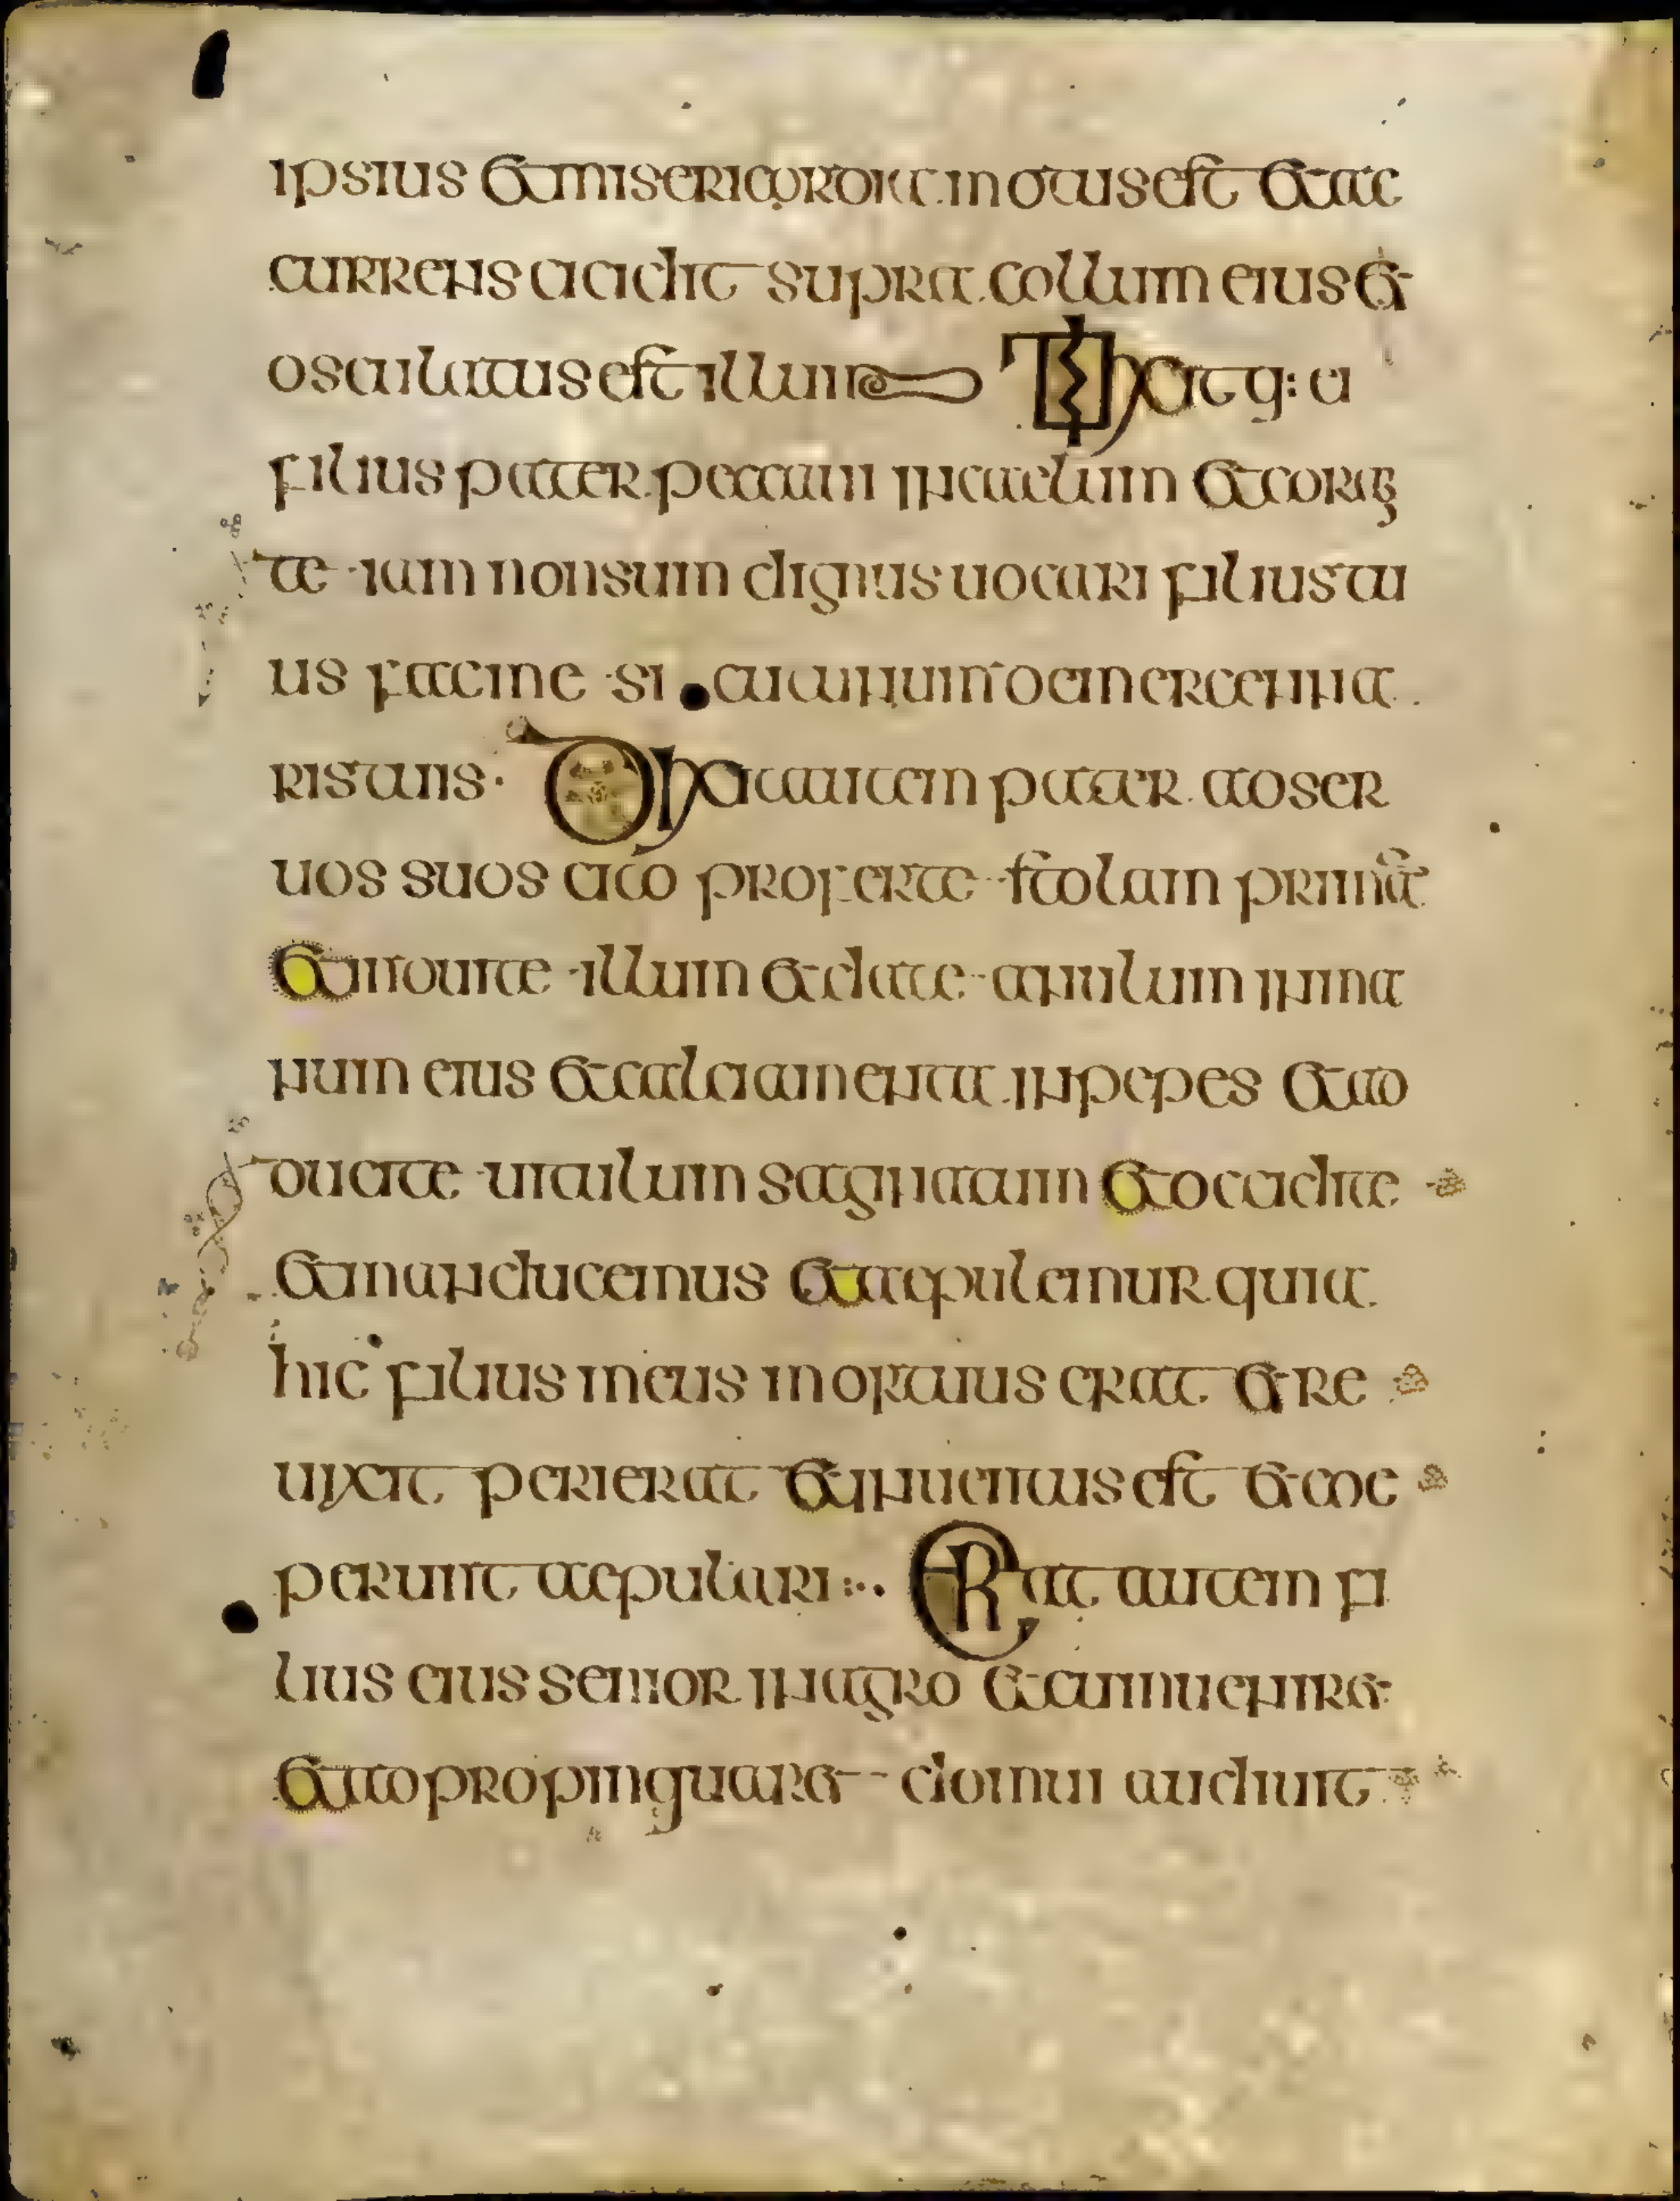 ipsius et misericordia motus est et ac
currens cicidit supra collum eius et
osculatus est illum Dixitq: ei
filius pater peccaui in caelum et corā
te iam non sum dignus uocari filius tu
us fac me si cut unum de mercenna
ris tuis. Dixit autem pater ad ser
uos suos cito proferte stolam primā
et induite illum et date anulum in ma
num eius et calciamenta in pedes et ad
ducite uitulum saginatum et occidite
et manducemus et aepulemur quia
hic filius meus mortuus erat et re
uixit perierat et inuentus est et coe
perunt aepulari :·. Erat autem fi
lius eius senior in agro et cum ueniret
et adpropinquaret domui audiuit